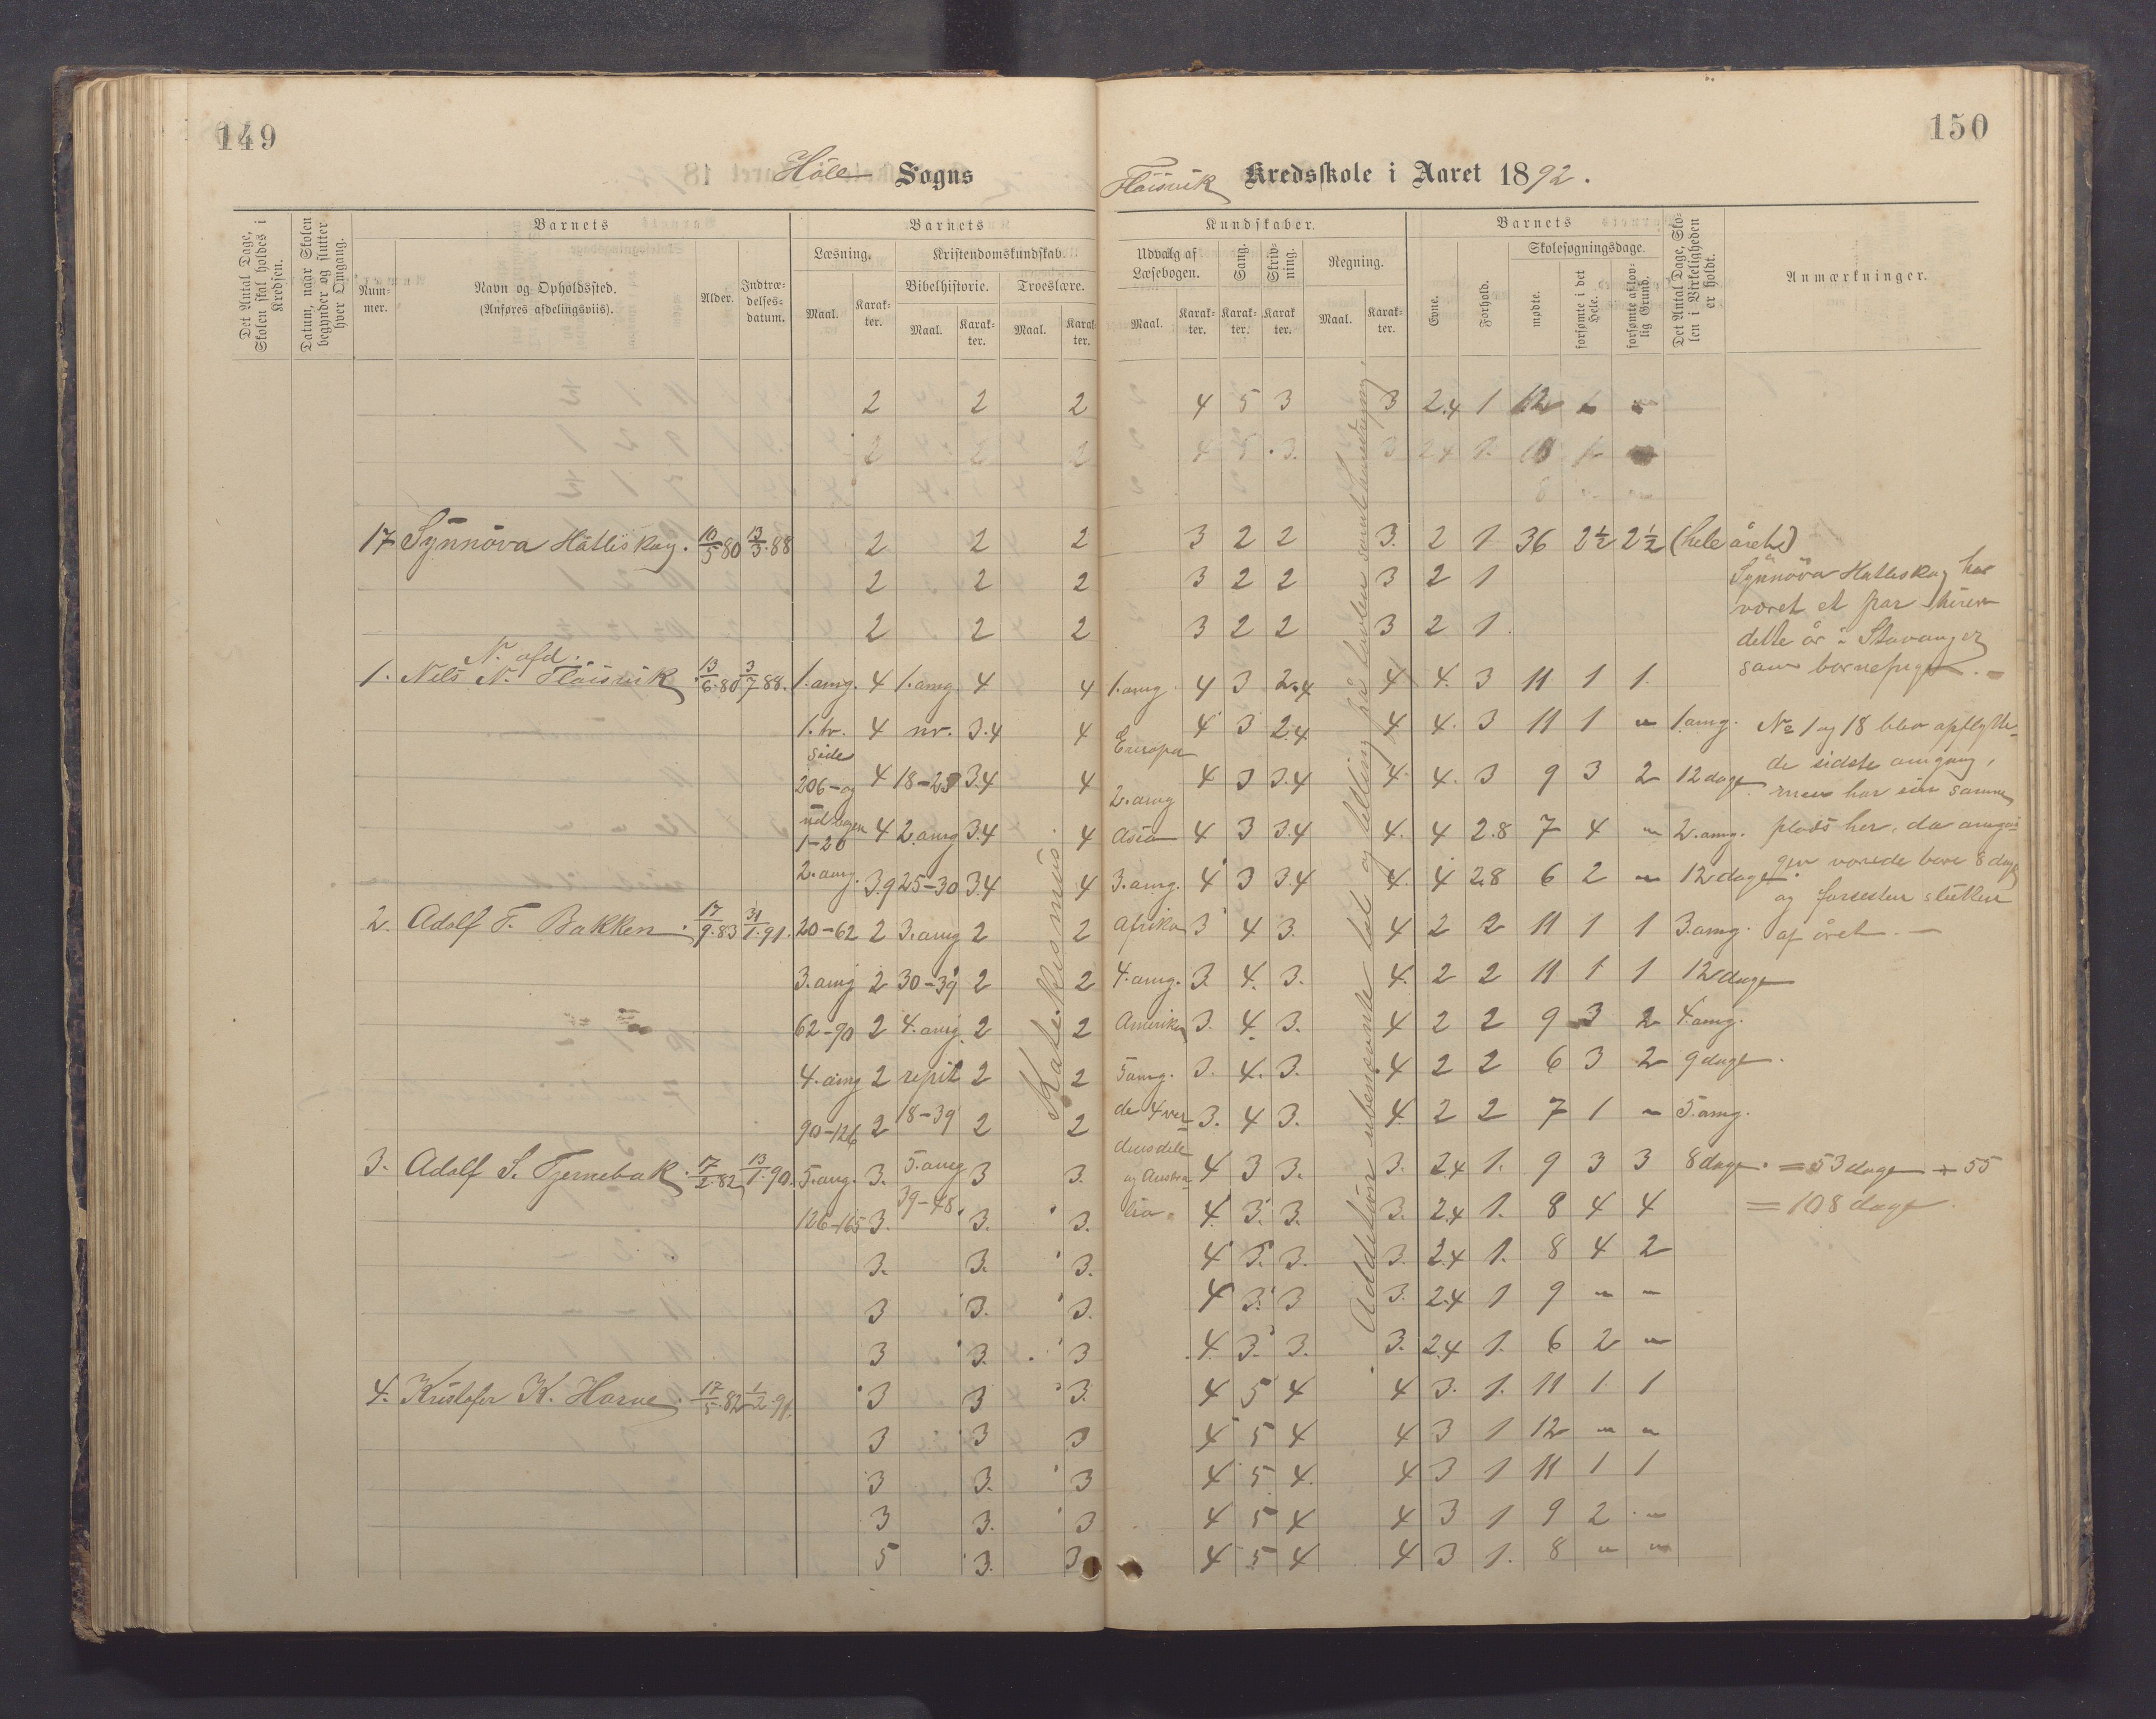 149
150
Höle Sogns
Fløisvik Kredsskole i Aaret 1892.
Det Antal Dage, Skolen skal holdes i Kredsen.
Datum, naar Skolen begynder og slutter hver Omgang.
Barnets
Num-mer.
Navn og Opholdssted.
(Anføres afdelingsviis).
Alder.
Indtræ-delses-datum.
Barnets
Læsning.
Maal.
Karak-ter.
Kristendomskundskab.
Bibelhistorie.
Maal.
Karak-ter.
Troeslære.
Maal.
Karak-ter.
Kundskaber.
Udvalg af Læsebogen.
Maal.
Karak-ter.
Sang.
Karak-ter.
Skriv-ning.
Karak-ter.
Regning.
Maal.
Karak-ter.
Barnets
Evne.
Forhold.
Skolesøgningsdage.
mødte.
forsømte i det Hele.
forsømte af lov-lig Grund.
Det Antal Dage, Sko-len i Virkeligheden er holdt.
Anmærkninger.
2 2 2 4 5 3 3 2.4 1 12
2 2 2 4 5 3. 3 2.4 1. 10
17 Synnöva Hatleskog. 10/5 80 13/3.88 2 2 2 3 2 2 3. 2 1 36 2½ 2½ (hele året)
2 2 2 3 2 2 3 2 1
2 2 2 3 2 2 3 2 1
Synnöva Hatleskog har
været et par turer
dette år i Stavanger
som barnepige. -
N. afd.
1. Nils N. Fløisvik 13/6.80 3/7 88. 1. omg. 4 1. omg. 4 4 1. omg. 4 3 2.4 4 4. 3 11 1 1.
1. tr. 4 nr. 3.4 4 Europa 4 3 2.4 4 4. 3 11 1 " 1 omg.
side
206-og 4 18-25 3.4 4 2. omg 4 3 3.4 4. 4. 3 9 3 2 12 dage
1-20 4 2. omg 3.4 4 Asia 4 3 3.4 4. 4 2.8 7 4 " 2. omg.
2. omg. 3.9 25-30 3.4 4 3. omg. 4 3 3.4 4. 4 2.8 6 2 " 12 dage
No 1 og 18 blev opflytte-
de sidste omgang,
men har sin samme
plads her, da omgan-
gen varede bare 8 dage
og forresten slutten
af året. -
2. Adolf T. Bakken. 17/9.83 31/1.91. 20-62 2 3. omg 2 2 Afrika 3 4 3. 4 2 2 11 1 1 3. omg.
3. omg 2 30-39 2 2 4. omg. 3. 4. 3. 4. 2 2 11 1 1 12 dage
62-90 2 4. omg. 2 2 Amerika 3. 4. 3. 4 2 2 9 3 2 4. omg.
4. omg 2 repit 2 2 5 omg. 3. 4. 3. 4 2 2 6 3 2 9 dage.
90-126 2 18-39 2 2 de 4 ver- 3. 4 3. 4. 2 2 7 1 " 5. omg.
3. Adolf S. Tjernebak. 17/2.82 13/1.90. 5. omg. 3. 5. omg 3 3. densdele 4 3 3. 3. 2.4 1. 9 3 3 8 dage. = 53 dage + 55
126-165 3. 39-48. 3. 3. og Austra- 4. 3. 3. 3. 2.4 1. 8 4 4 = 108 dage.
lia.
3. 3. 3. 4 3. 3. 3. 2.4 1. 8 4 2
3 3. 3. 4 3. 3 3. 2.4 1 9 " "
3 3. 3 4. 3. 3. 3. 2.4 1. 6 2 "
4. Kristofer K. Horve. 17/5.82 1/2.91. 3 3 3. 4 5 4 4 3. 1. 11 1. 1
3 3 3 4 5 4 4 3 1 12 " "
3 3. 3 4 5 4. 4 3 1 11 1 1
3 3. 3 4 5 4 4 3 1 9 2 "
5 3. 3 4 5 4 4 3 1. 8 " "
Katekismus.
Addition ubenevnte tal og telling på tavlen samt hovedregning.